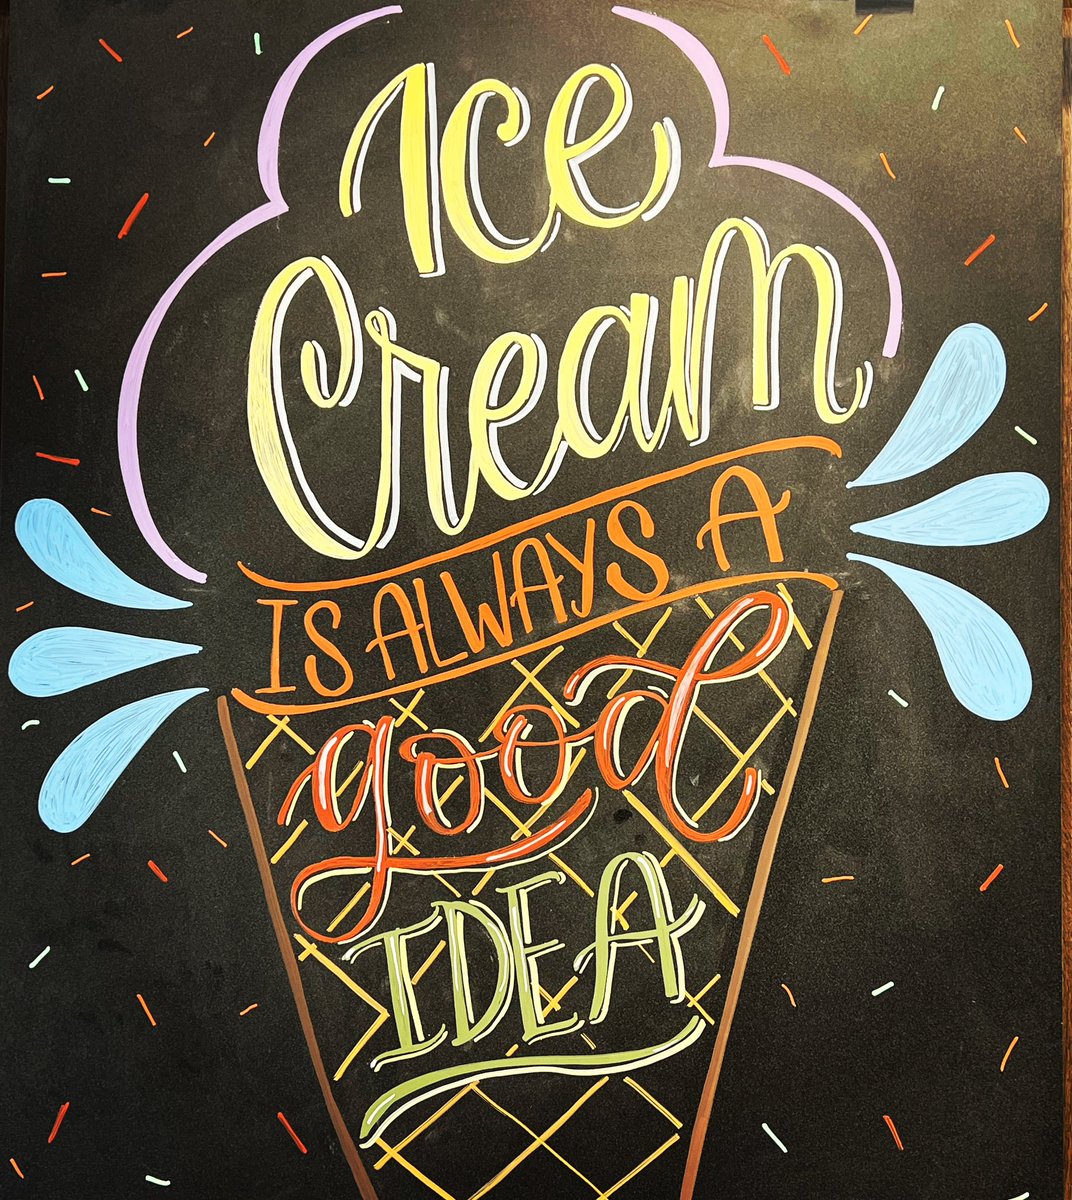 Ice
Cream
IS ALWAYS A
good
IDEA